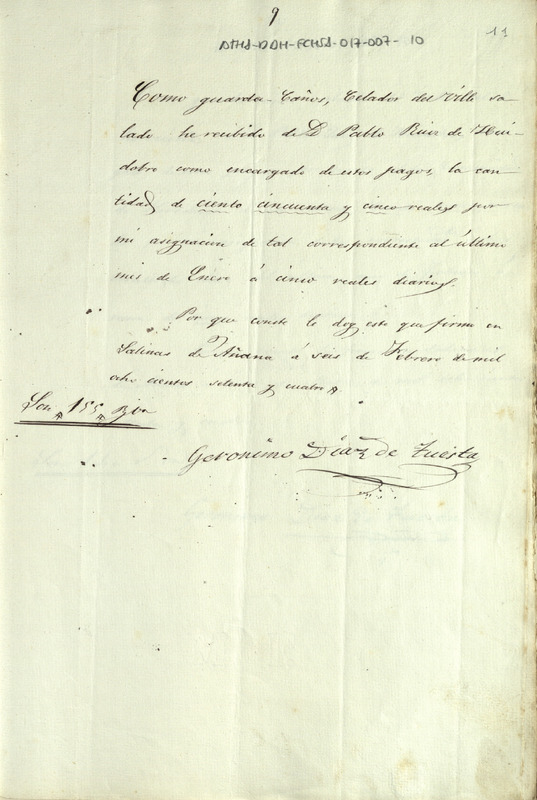 9
ATHA-DDH-FCHSA-017-007-10
11
Como guarda-Caños, Celador del Valle sa-
lado he recibido de D Pablo Ruiz de Hui-
dobro como encargado de estos pagos, la can-
tidad de ciento cincuenta y cinco reales por
mi asignacion de tal correspondiente al último
mes de Enero á cinco reales diarios.
Por que conste le doy este que firmo en
Salinas de Añana á seis de Febrero de mil
ocho cientos setenta y cuatro
Son 155 Rvn
Geronimo Díaz de Tuesta